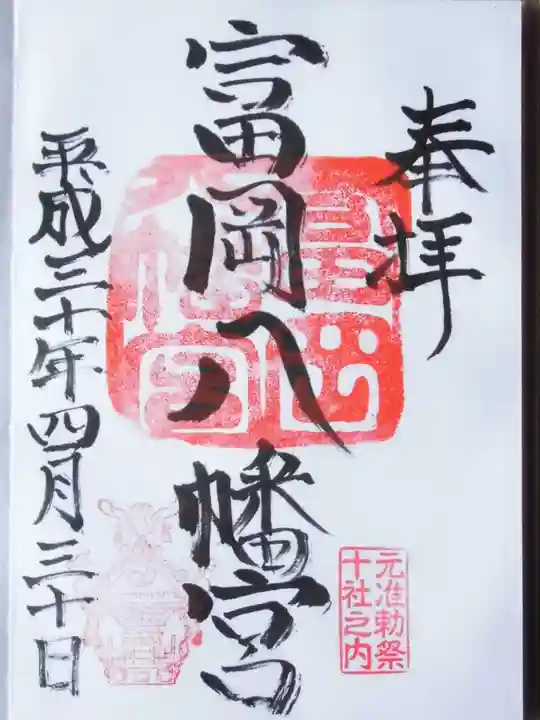 奉拝
富岡八幡宮
平成三十年四月三十日
元准勅祭
十社之内